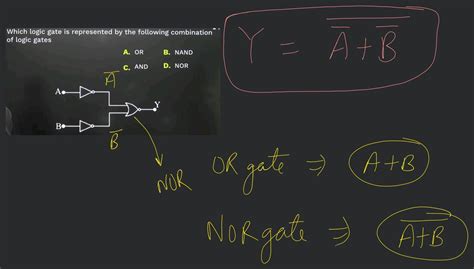 Which logic gate is represented by the following combination
of logic gates
A. OR B. NAND
C. AND D. NOR
A
B
Y
A̅
B̅
NOR
Y = \overline{\overline{A}+\overline{B}}
OR gate ⇒ A+B
NOR gate ⇒ \overline{A+B}